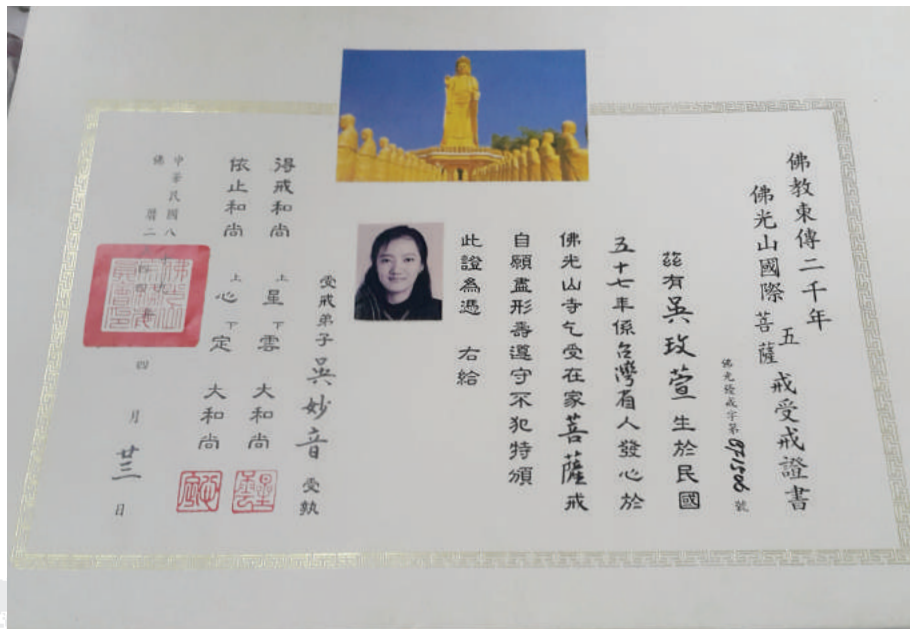 佛教東傳二千年
佛光山國際五菩薩戒受戒證書
佛光發戒字第 號
茲有吳玫萱生於民國
五十七年係台灣省人發心於
佛光山寺乞受在家菩薩戒
自願盡形壽遵守不犯特頒
此證為憑 右給
受戒弟子吳妙音 受執
得戒和尚 上星下雲 大和尚
依止和尚 上心下定 大和尚
中華民國八 四月廿三日
佛曆二